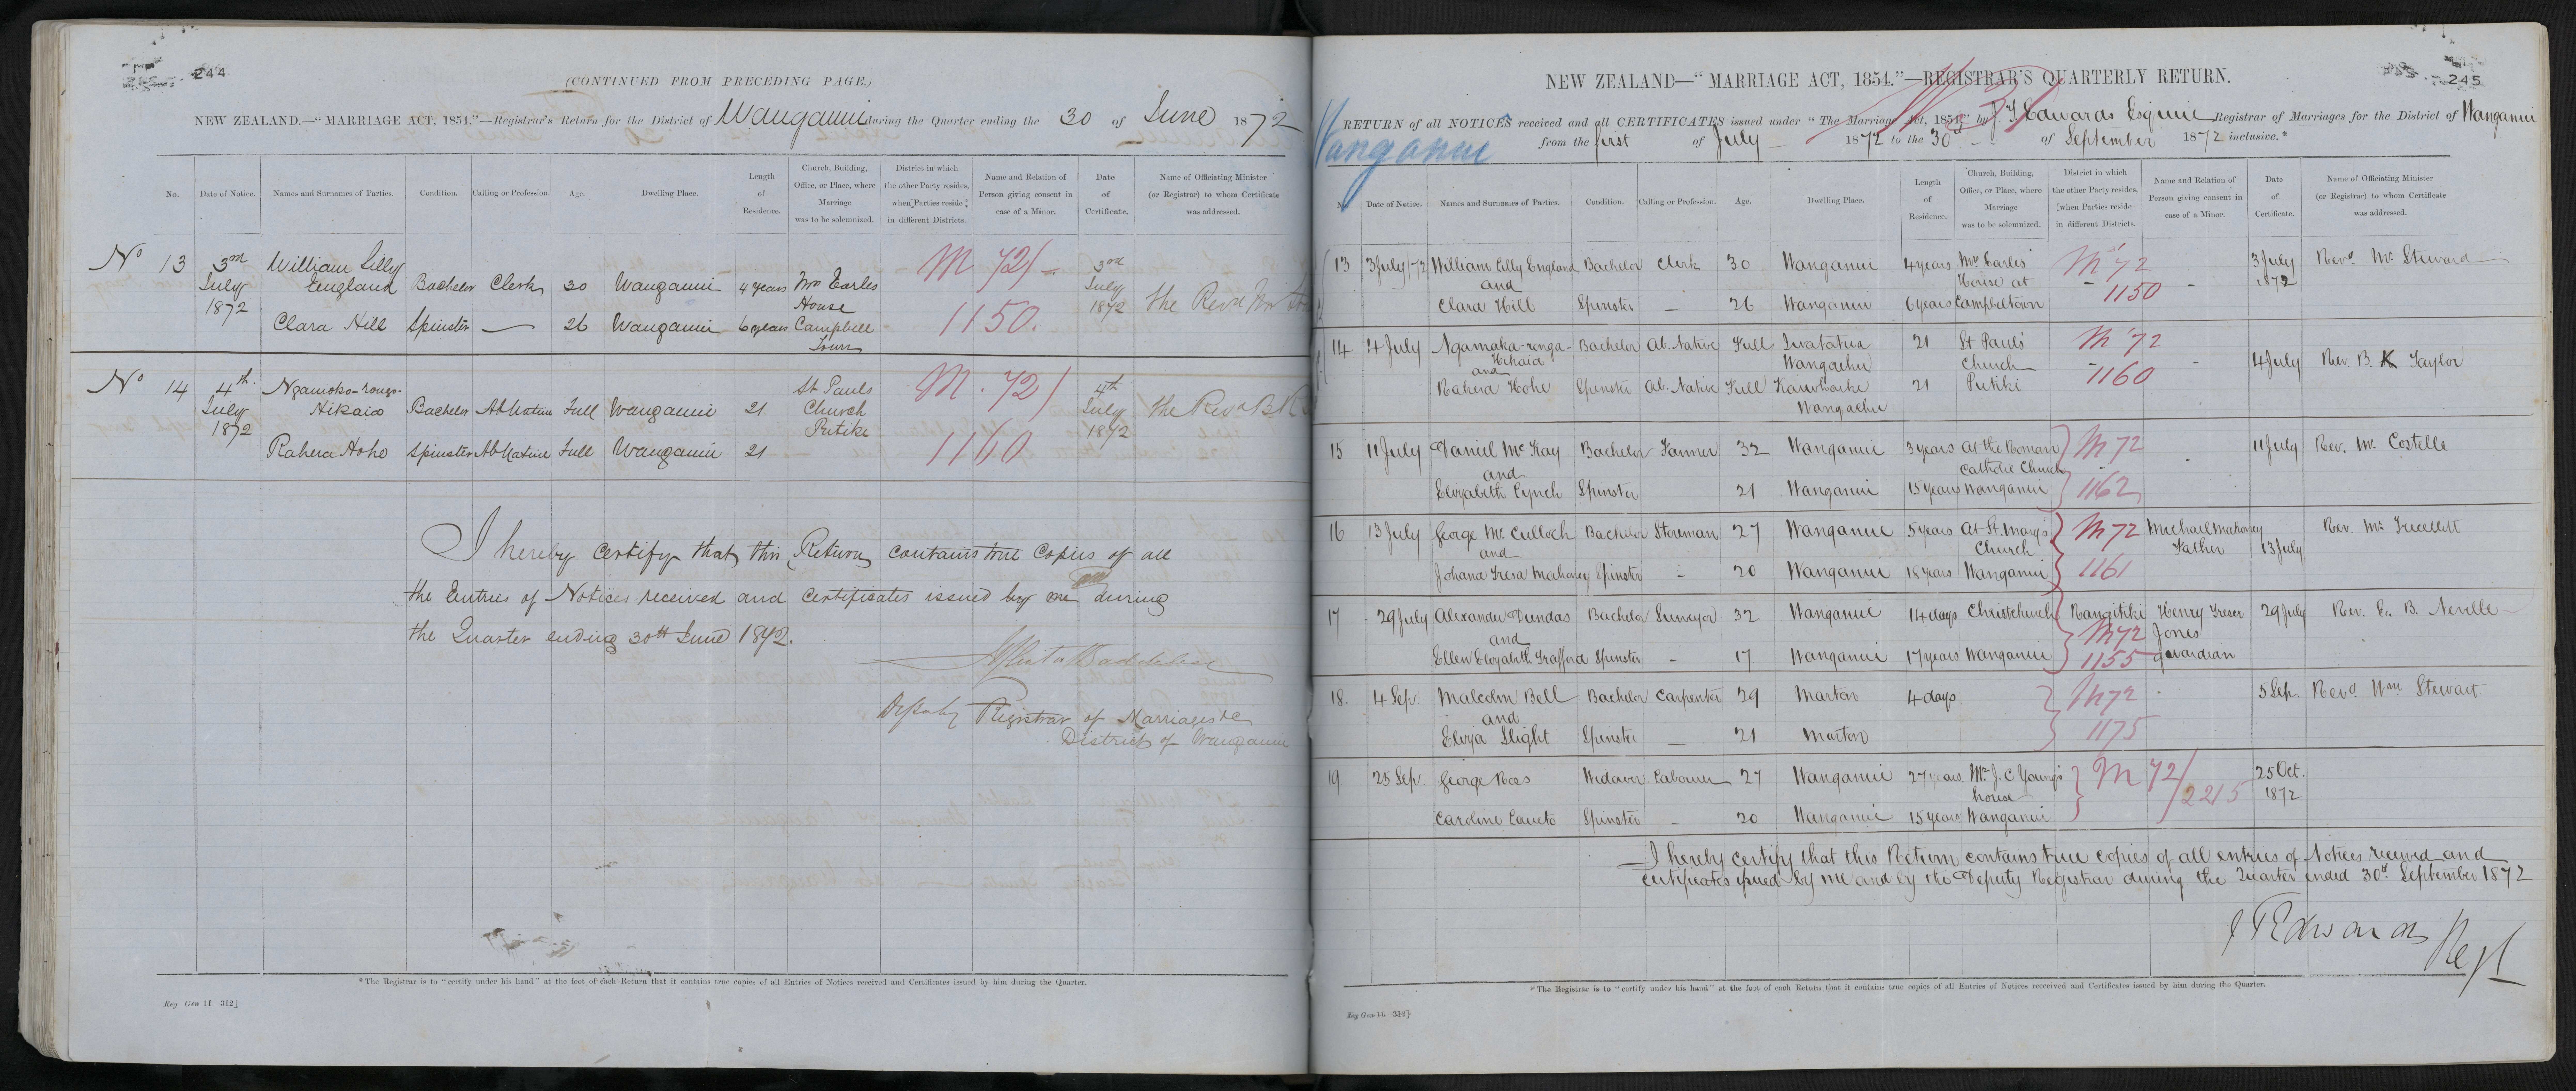 244
(CONTINUED FROM PRECEDING PAGE.)
NEW ZEALAND.—"MARRIAGE ACT, 1854."—Registrar's Return for the District of Wanganui during the Quarter ending the 30 of June 1872
No. Date of Notice. Names and Surnames of Parties. Condition. Calling or Profession. Age. Dwelling Place. Length of Residence. Church, Building, Office, or Place, where Marriage was to be solemnized. District in which the other Party resides, when Parties reside in different Districts. Name and Relation of Person giving consent in case of a Minor. Date of Certificate. Name of Officiating Minister (or Registrar) to whom Certificate was addressed.
No 13 3rd July 1872 William Lilly England Bachelor Clerk 30 Wanganui 4 years Mrs Earles House Campbell Town M 72/ 1150. 3rd July 1872 the Revd Mr
Clara Hill Spinster — 26 Wanganui 6 years
No 14 4th July 1872 Ngamoko-rongo-Hikaia Bachelor Ab Native Full Wanganui 21 St Pauls Church Putiki M. 72/ 1160 4th July 1872 the Revd B K
Rahera Hoho Spinster Ab Native Full Wanganui 21
I hereby certify that this Return contains true copies of all
the Entries of Notices received and certificates issued by me during
the Quarter ending 30th June 1872.
Deputy Registrar of Marriages &c
District of Wanganui
*The Registrar is to "certify under his hand" at the foot of each Return that it contains true copies of all Entries of Notices received and Certificates issued by him during the Quarter.
Reg Gen 11—312]
245
NEW ZEALAND—"MARRIAGE ACT, 1854."—REGISTRAR'S QUARTERLY RETURN.
RETURN of all NOTICES received and all CERTIFICATES issued under "The Marriage Act, 1854" by J T Edwards Esquire Registrar of Marriages for the District of Wanganui
Wanganui
from the first of July 1872 to the 30th of September 1872 inclusive.*
No. Date of Notice. Names and Surnames of Parties. Condition. Calling or Profession. Age. Dwelling Place. Length of Residence. Church, Building, Office, or Place, where Marriage was to be solemnized. District in which the other Party resides, when Parties reside in different Districts. Name and Relation of Person giving consent in case of a Minor. Date of Certificate. Name of Officiating Minister (or Registrar) to whom Certificate was addressed.
13 3 July /72 William Lilly England Bachelor Clerk 30 Wanganui 4 years Mrs Earles House at Campbeltown M 72 1150 - 3 July 1872 Revd Mr Steward
and
Clara Hill Spinster - 26 Wanganui 6 years
14 4 July Ngamaka-ronga-Hikaia Bachelor Ab. Native Full Wangaehu 21 St Pauls Church Putiki M 72 1160 - 4 July Rev. B. K Taylor
and
Rahera Hohe Spinster Ab. Native Full Wangaehu 21
15 11 July Daniel McKay Bachelor Farmer 32 Wanganui 3 years At the Roman Catholic Church Wanganui M 72 1162 - 11 July Rev. Mr. Costelle
and
Elizabeth Lynch Spinster 21 Wanganui 15 years
16 13 July George McCulloch Bachelor Storeman 27 Wanganui 5 years At St. Mary's Church Wanganui M 72 1161 Michael Mahoney Father 13 July Rev. Mr.
and
Johana Tresa Mahoney Spinster - 20 Wanganui 18 years
17 29 July Alexander Dundas Bachelor Surveyor 32 Wanganui 14 days Christchurch Wanganui Rangitiki M 72 1155 Henry Jones guardian 29 July Rev. C. B. Neville
and
Ellen Elizabeth Trafford Spinster - 17 Wanganui 17 years
18. 4 Sep. Malcolm Bell Bachelor Carpenter 29 Marton 4 days M 72 1175 5 Sep. Revd Wm Stewart
and
Eliza Slight Spinster — 21 Marton
19 25 Sep. George Ross Widower Labourer 27 Wanganui 27 years Mr. J. C Young's house Wanganui M 72/2215 25 Oct. 1872
Caroline Spinster - 20 Wanganui 15 years
I hereby certify that this Return contains true copies of all entries of Notices received and
certificates issued by me and by the Deputy Registrar during the Quarter ended 30th September 1872
J T Edwards
Regr
*The Registrar is to "certify under his hand" at the foot of each Return that it contains true copies of all Entries of Notices received and Certificates issued by him during the Quarter.
Reg Gen 11—312]